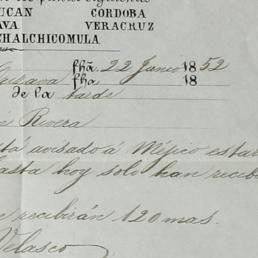 UCAN CÓRDOBA
AVA VERACRUZ
CHALCHICOMULA
fhã 22 Junio 1852
fha 18
de la tarde
Rivera
tá avisado á Méjico estar
asta hoy solo han recibi
e recibirán 120 mas.
Velasco